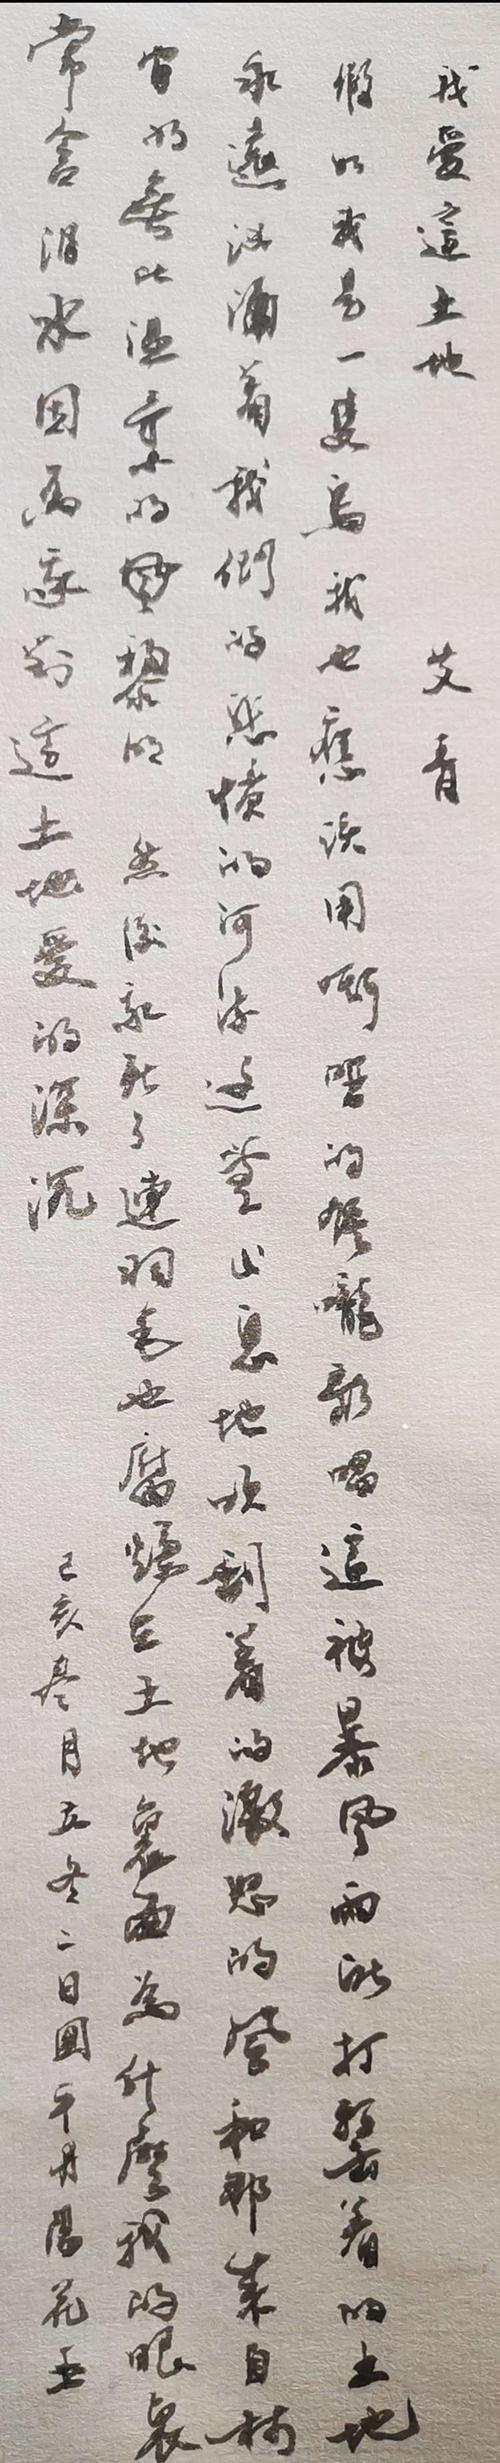 我愛這土地 艾青
假如我是一隻鳥我也應該用嘶啞的喉嚨歌唱這被暴風雨所打擊着的土地
永遠汹湧着我們的悲憤的河流這無止息地吹刮着的激怒的風和那來自林
間的無比温柔的黎明 然後我死了連羽毛也腐爛在土地裏面為什麼我的眼裏
常含淚水因為我對這土地愛的深沉
己亥冬月 二日國平